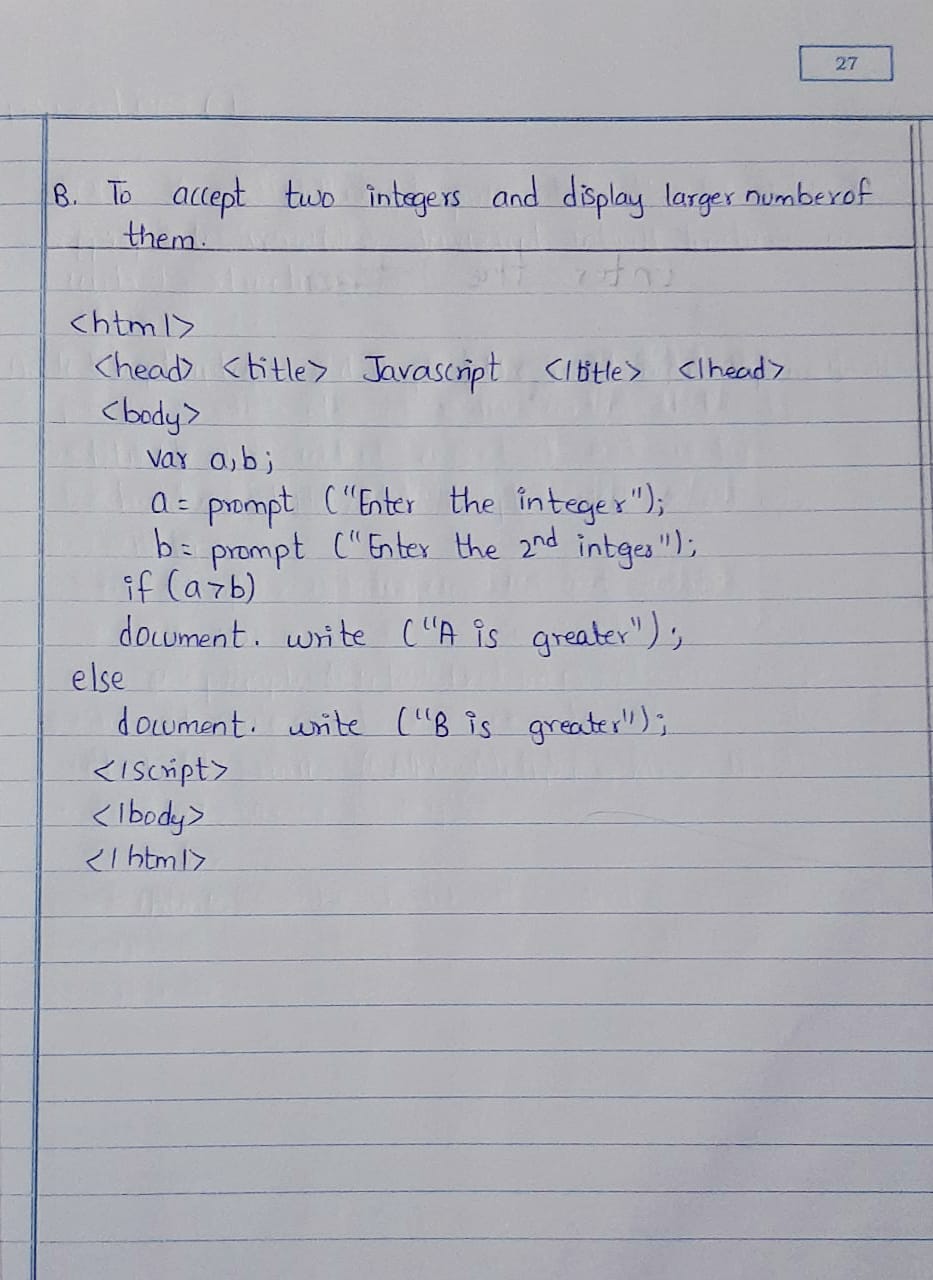 27
B. To accept two integers and display larger number of
them.
<html>
<head> <title> Javascript </title> </head>
<body>
var a,b;
a = prompt ("Enter the integer");
b = prompt ("Enter the 2nd intger");
if (a>b)
document. write ("A is greater");
else
document. write ("B is greater");
</script>
</body>
</html>